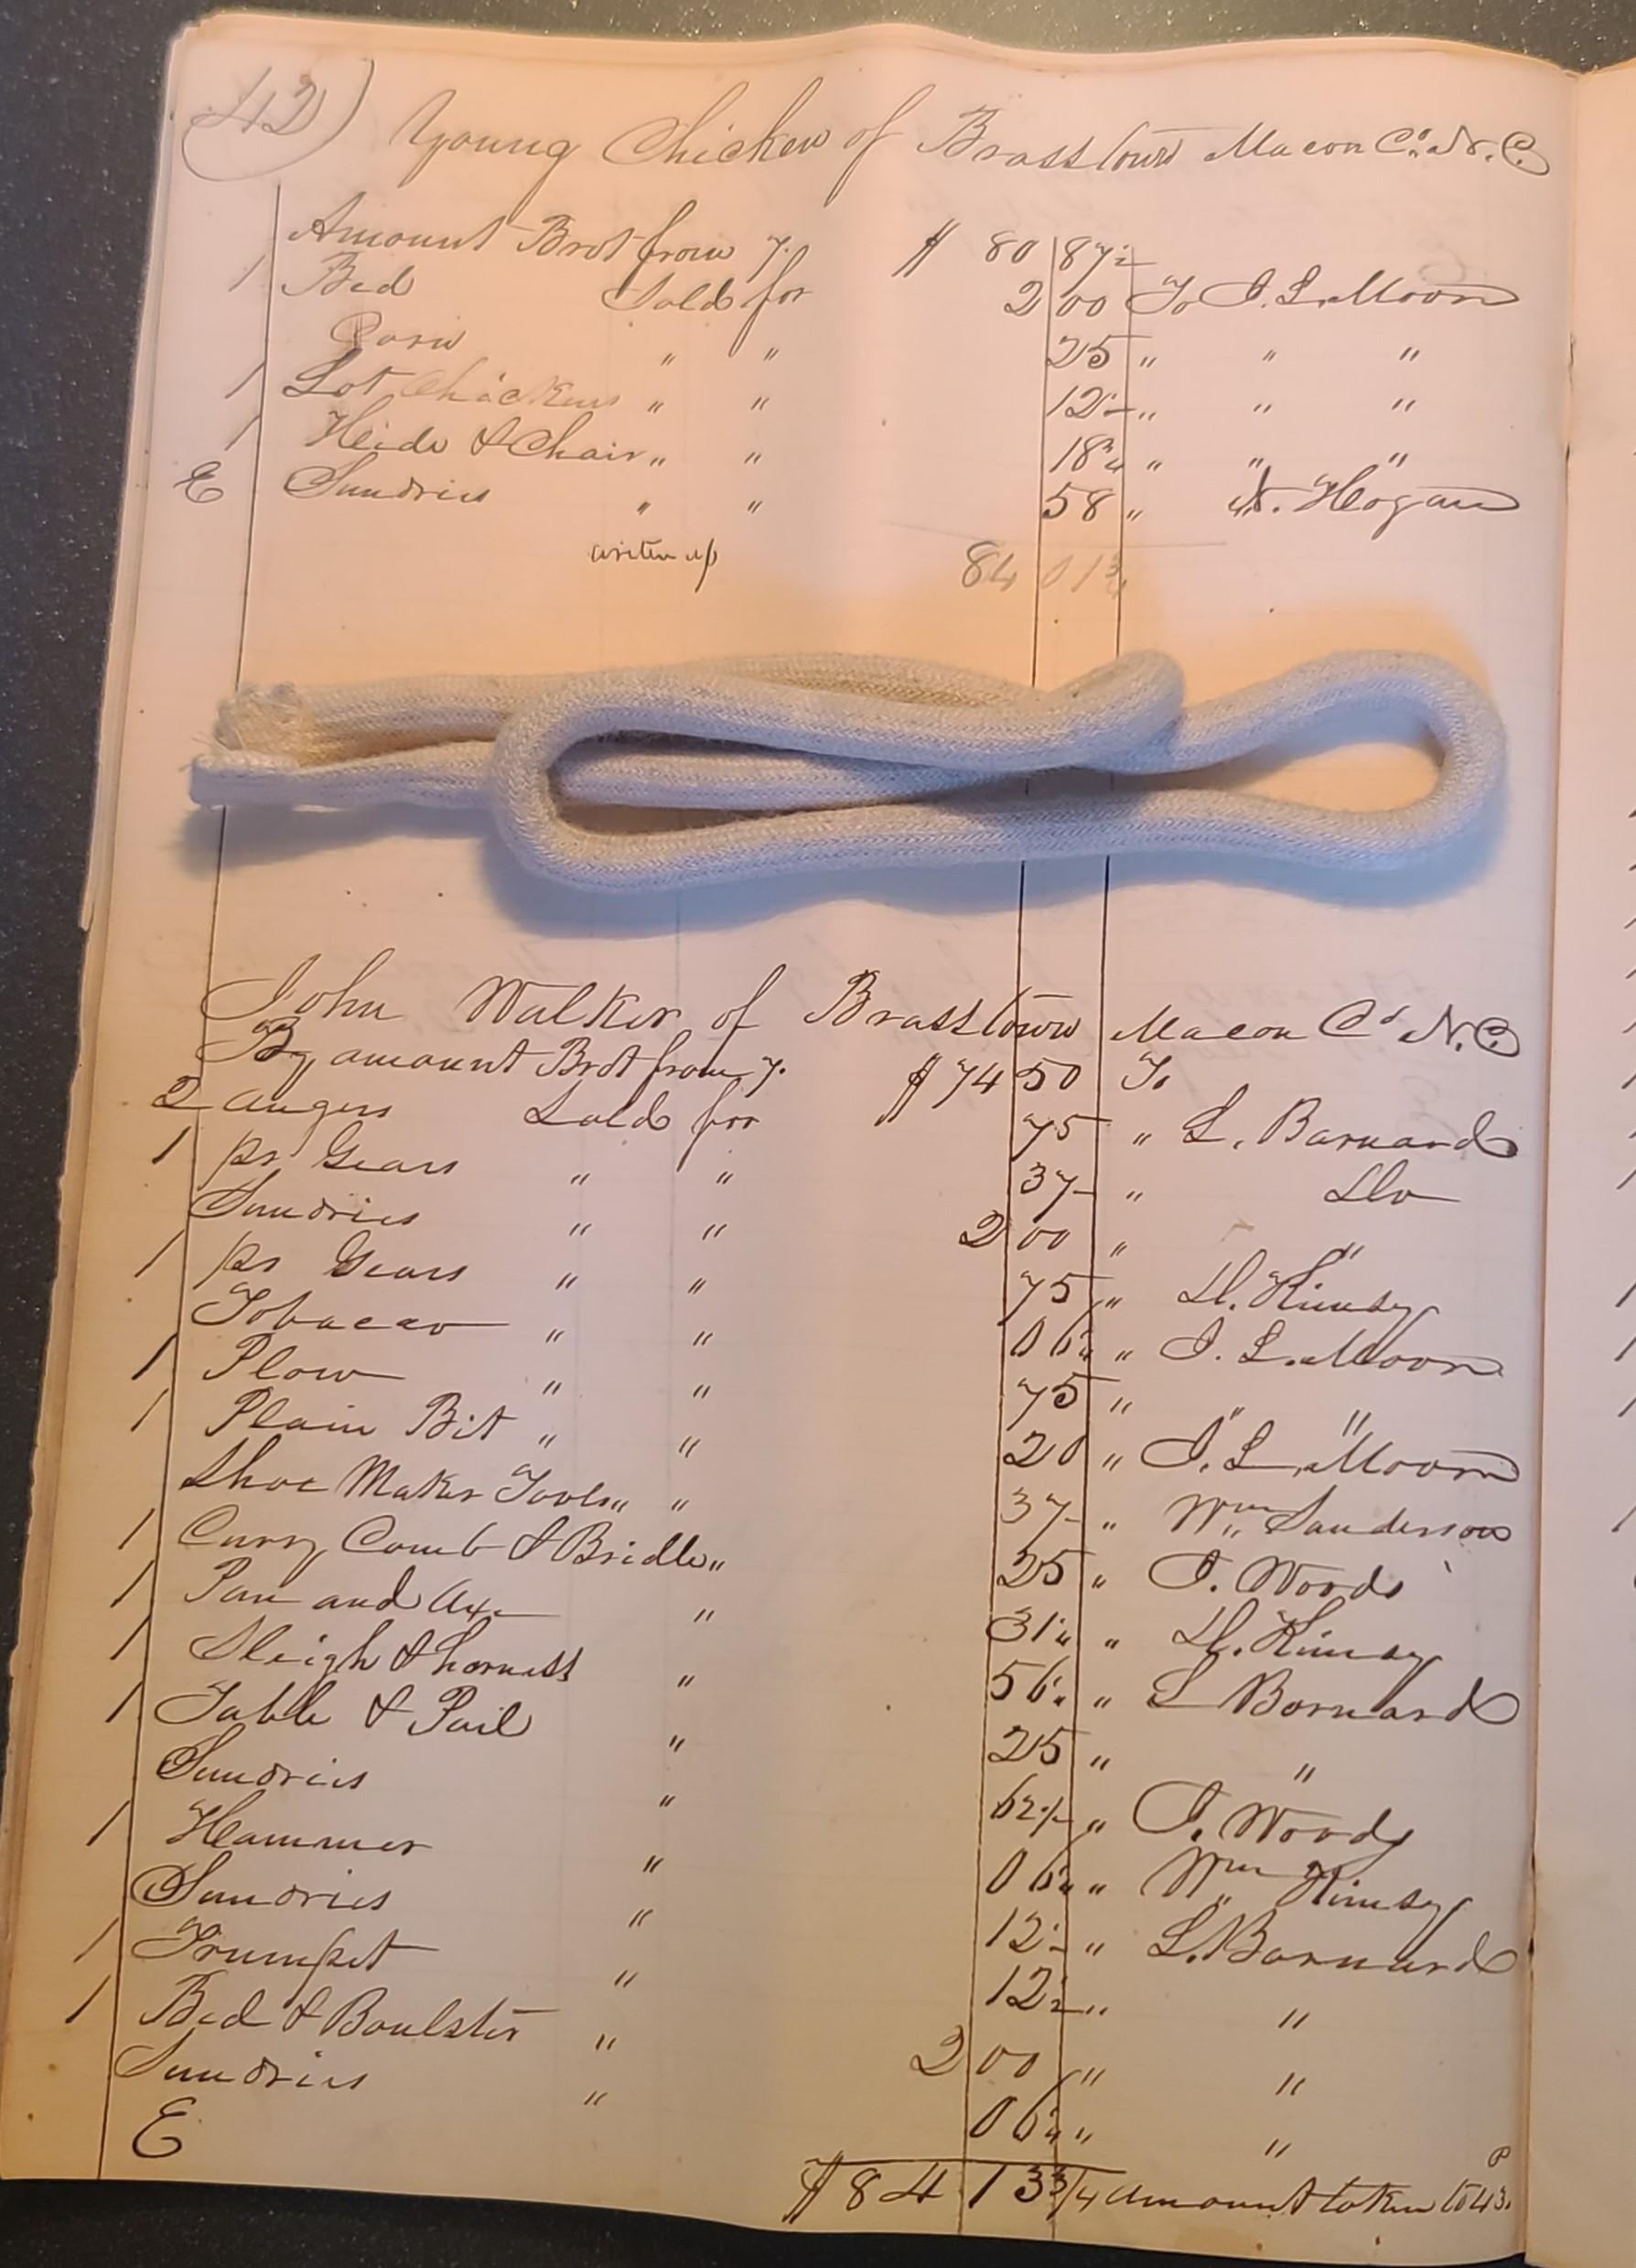 42)
Young Chicken of Brasstown Macon Co. N.C.
Amount Brot from 7. $ 80 87½
1 Bed Sold for 2 00 To I. L. Moore
Corn " " 25 " " "
1 Lot Chickens " " 12½ " " "
1 Heide & Chair " " 18¾ " " "
E Sundries " " 58 " N. Hogan
writen up 84 01¾
John Walker of Brasstown Macon Co N.C.
By amount Brot from 7. $ 74 50 To
2 augers Sold for 75 " L. Barnard
1 pr Gears " " 37½ " Do
Sundries " " 2 00 " "
1 pr Gears " " 75 " D. Kimsey
Tobacco " " 06¼ " I. L. Moore
1 Plow " " 75 " " "
1 Plain Bit " " 20 " I. L. Moore
Shoe Maker Tools " " 37½ " Wm Sanderson
1 Curry Comb & Bridle " 25 " I. Woods
1 Pan and Axe " 31¼ " D. Kimsey
1 Sleigh & harness " 56¼ " L Barnard
1 Table & Pail " 25 " "
Sundries " 62½ " I. Woods
1 Hammer " 06¼ " Wm Kimsey
Sundries " 12½ " L. Barnard
1 Trumpet " 12½ " "
1 Bed & Boulster " 2 00 " "
Sundries " 06¼ " "
E
$ 84 13¾ amount taken to P 43.